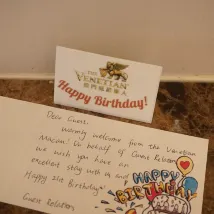 THE
VENETIAN®
澳門威尼斯人
Happy Birthday!
Dear Guest.
Warmly welcome from the Venetian
Macau. On behalf of Guest Relation
we wish you have an
excellent stay with us and
Happy 21st Birthday!
Guest Relation
HAPPY
BIRTHDAY